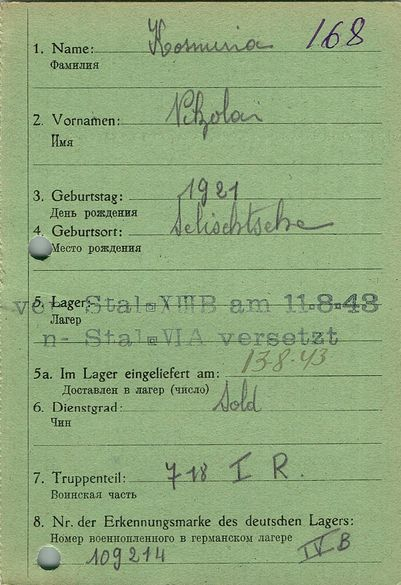 168
1. Name: Kosmina
Фамилия
2. Vornamen: Nikolai
Имя
3. Geburtstag: 1921
День рождения
4. Geburtsort: Selischtsche
Место рождения
5. Lager:
von Stalag XIII B am 11.8.43
Лагер
n- Stalag VI A versetzt
5a. Im Lager eingeliefert am: 13.8.43
Доставлен в лагер (число)
6. Dienstgrad: Sold
Чин
7. Truppenteil: 718 I R.
Воинская часть
8. Nr. der Erkennungsmarke des deutschen Lagers:
Номер военнопленного в германском лагере
109214 IV B